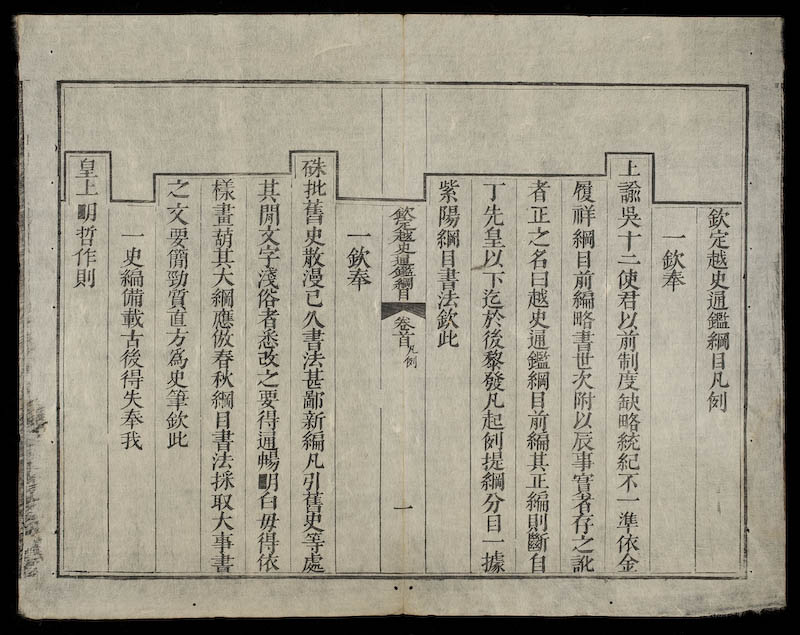 欽定越史通鑑綱目凡例
一欽奉
上諭吳十二使君以前制度缺略統紀不一準依金
履祥綱目前編略書世次附以辰事實者存之訛
者正之名曰越史通鑑綱目前編其正編則斷自
丁先皇以下迄於後黎發凡起例提綱分目一據
紫陽綱目書法欽此
欽定越史通鑑綱目 卷首 凡例 一
一欽奉
硃批舊史散漫已久書法甚鄙新編凡引舊史等處
其閒文字淺俗者悉改之要得通暢明白毋得依
樣畫葫其大綱應倣春秋綱目書法採取大事書
之文要簡勁質直方為史筆欽此
一史編備載古後得失奉我
皇上明哲作則